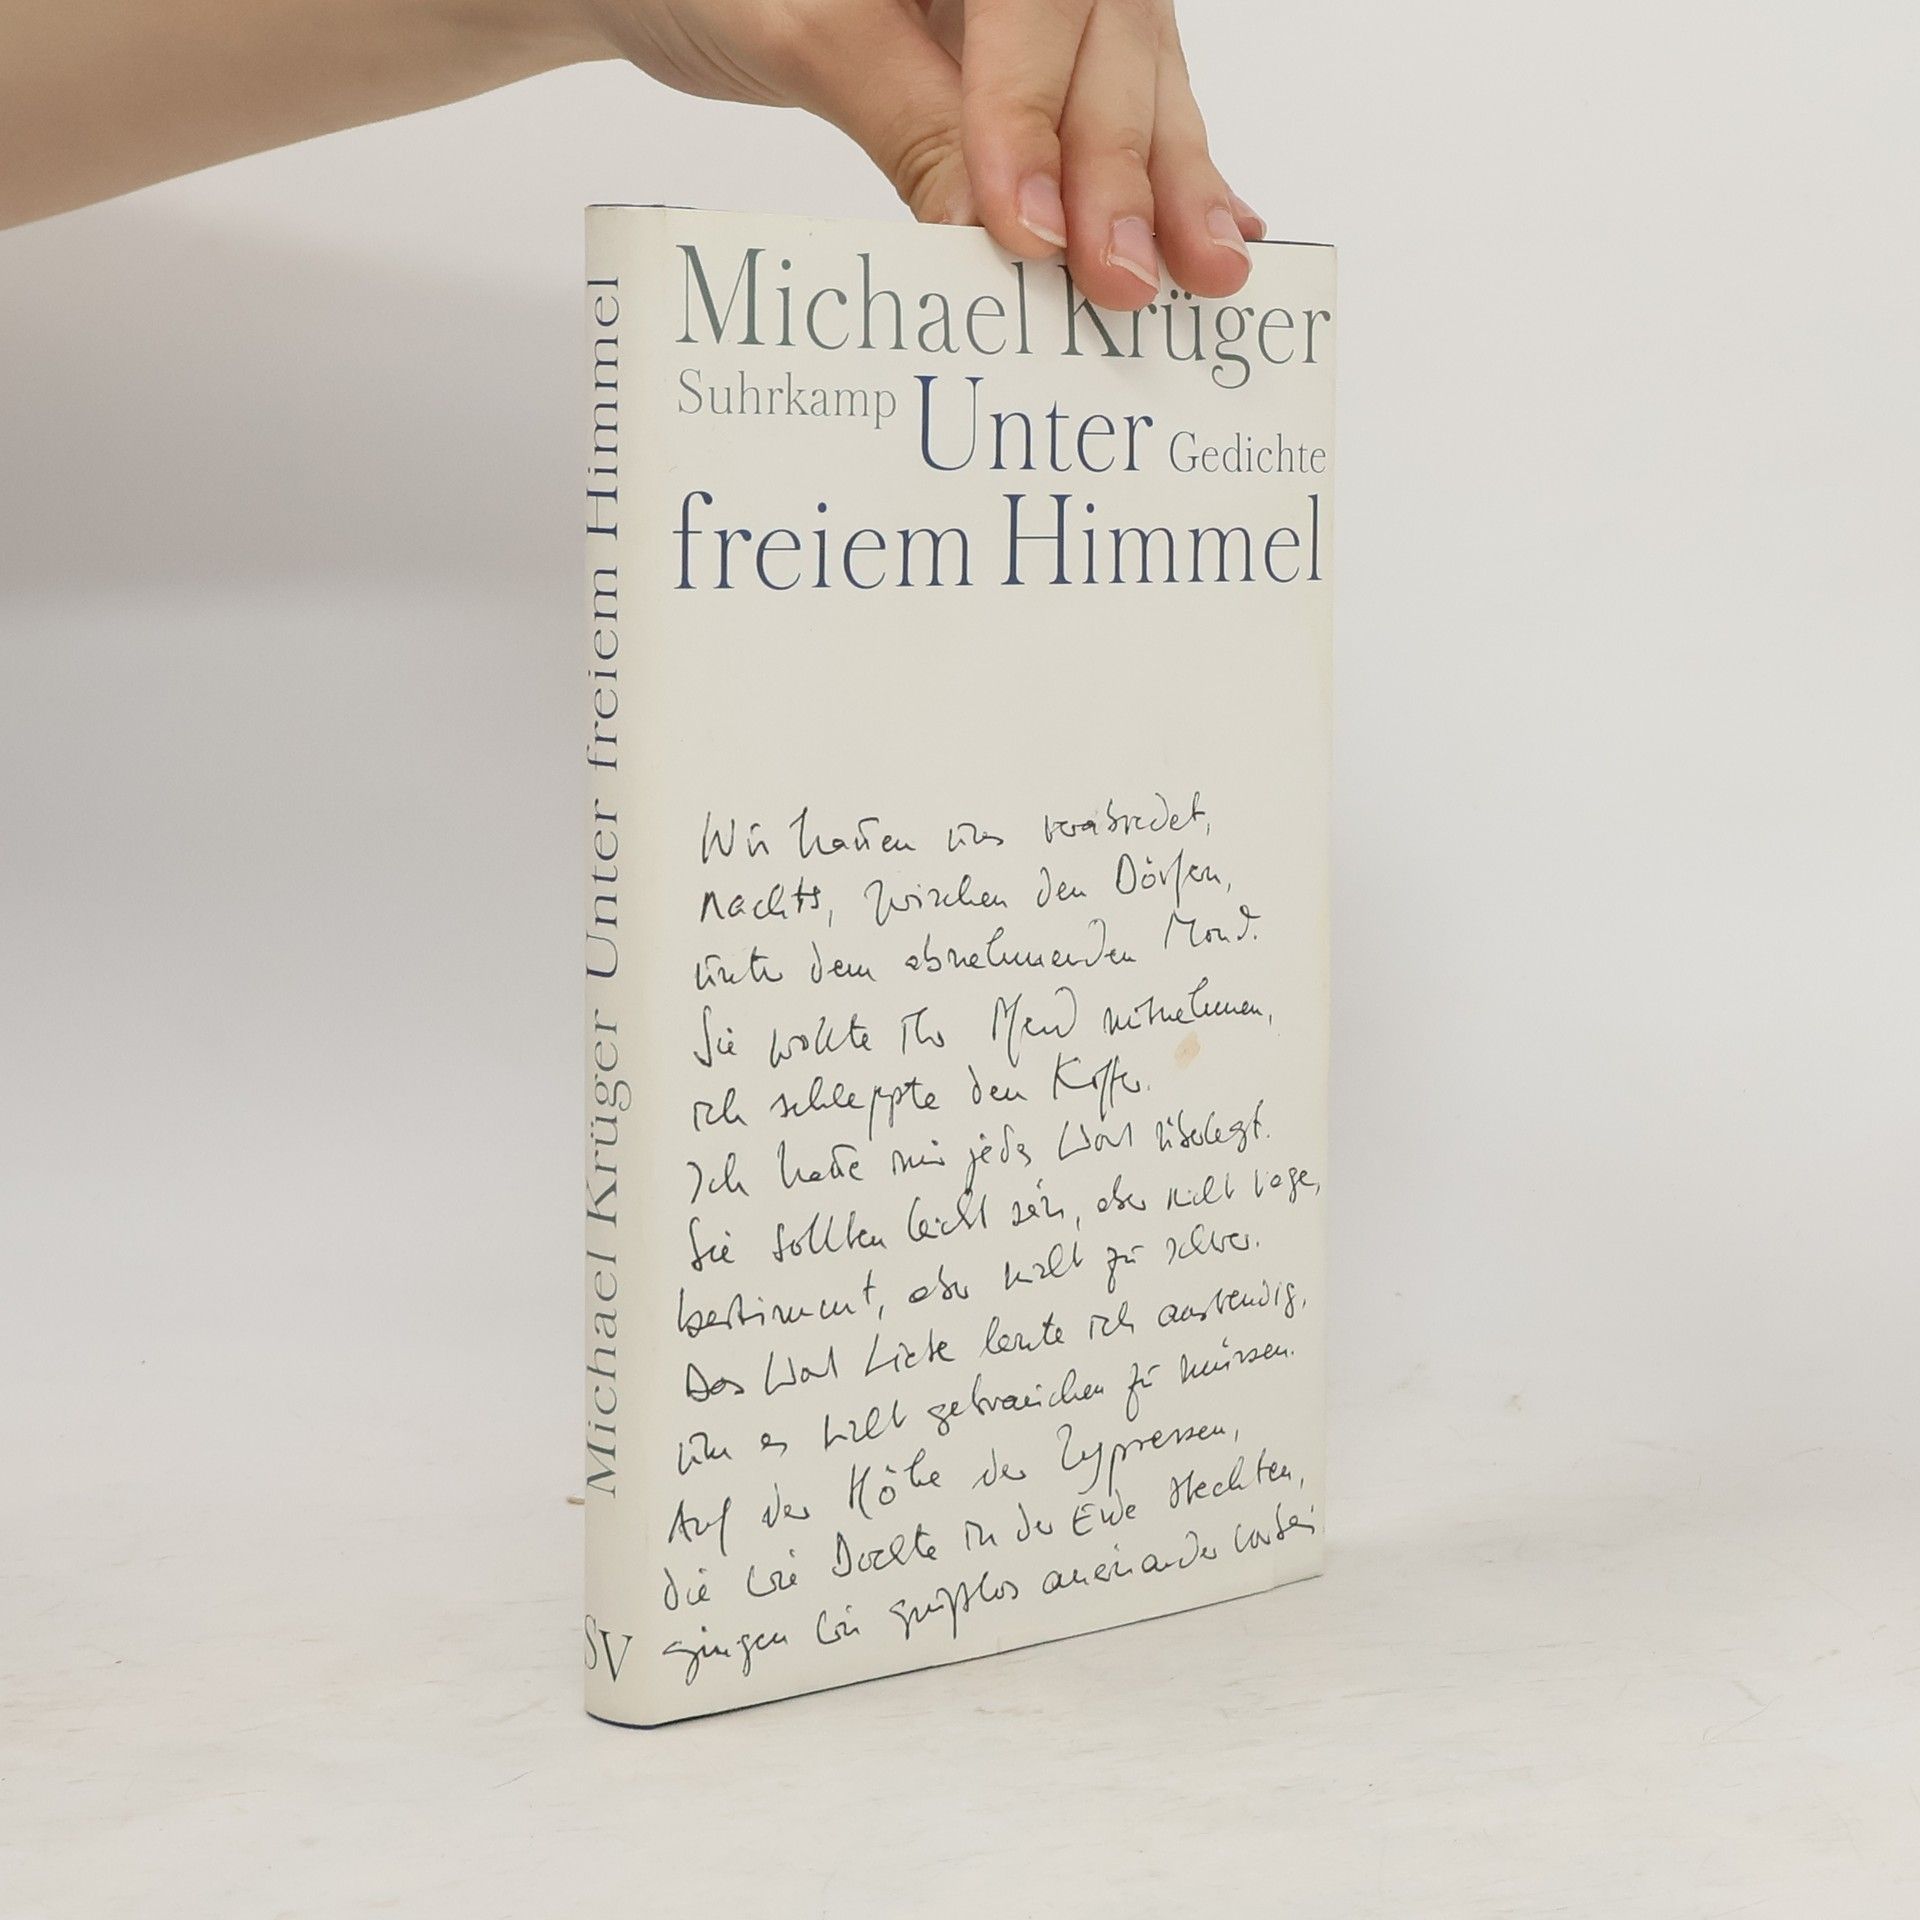 Michael Krüger
Suhrkamp Unter Gedichte
freiem Himmel
Wir hatten uns verabredet,
nachts, zwischen den Dörfern,
unter dem abnehmenden Mond.
Sie wollte ihr Pferd mitnehmen,
ich schleppte den Koffer.
Ich hatte mir jedes Wort überlegt.
Sie sollten leicht sein, aber nicht vage,
bestimmt, aber nicht zu schwer.
Das Wort Liebe lernte ich auswendig,
um es nicht gebrauchen zu müssen.
Auf der Höhe der Zypressen,
die wie Dochte in der Erde steckten,
gingen wir grußlos aneinander vorbei
Michael Krüger Unter freiem Himmel
SV